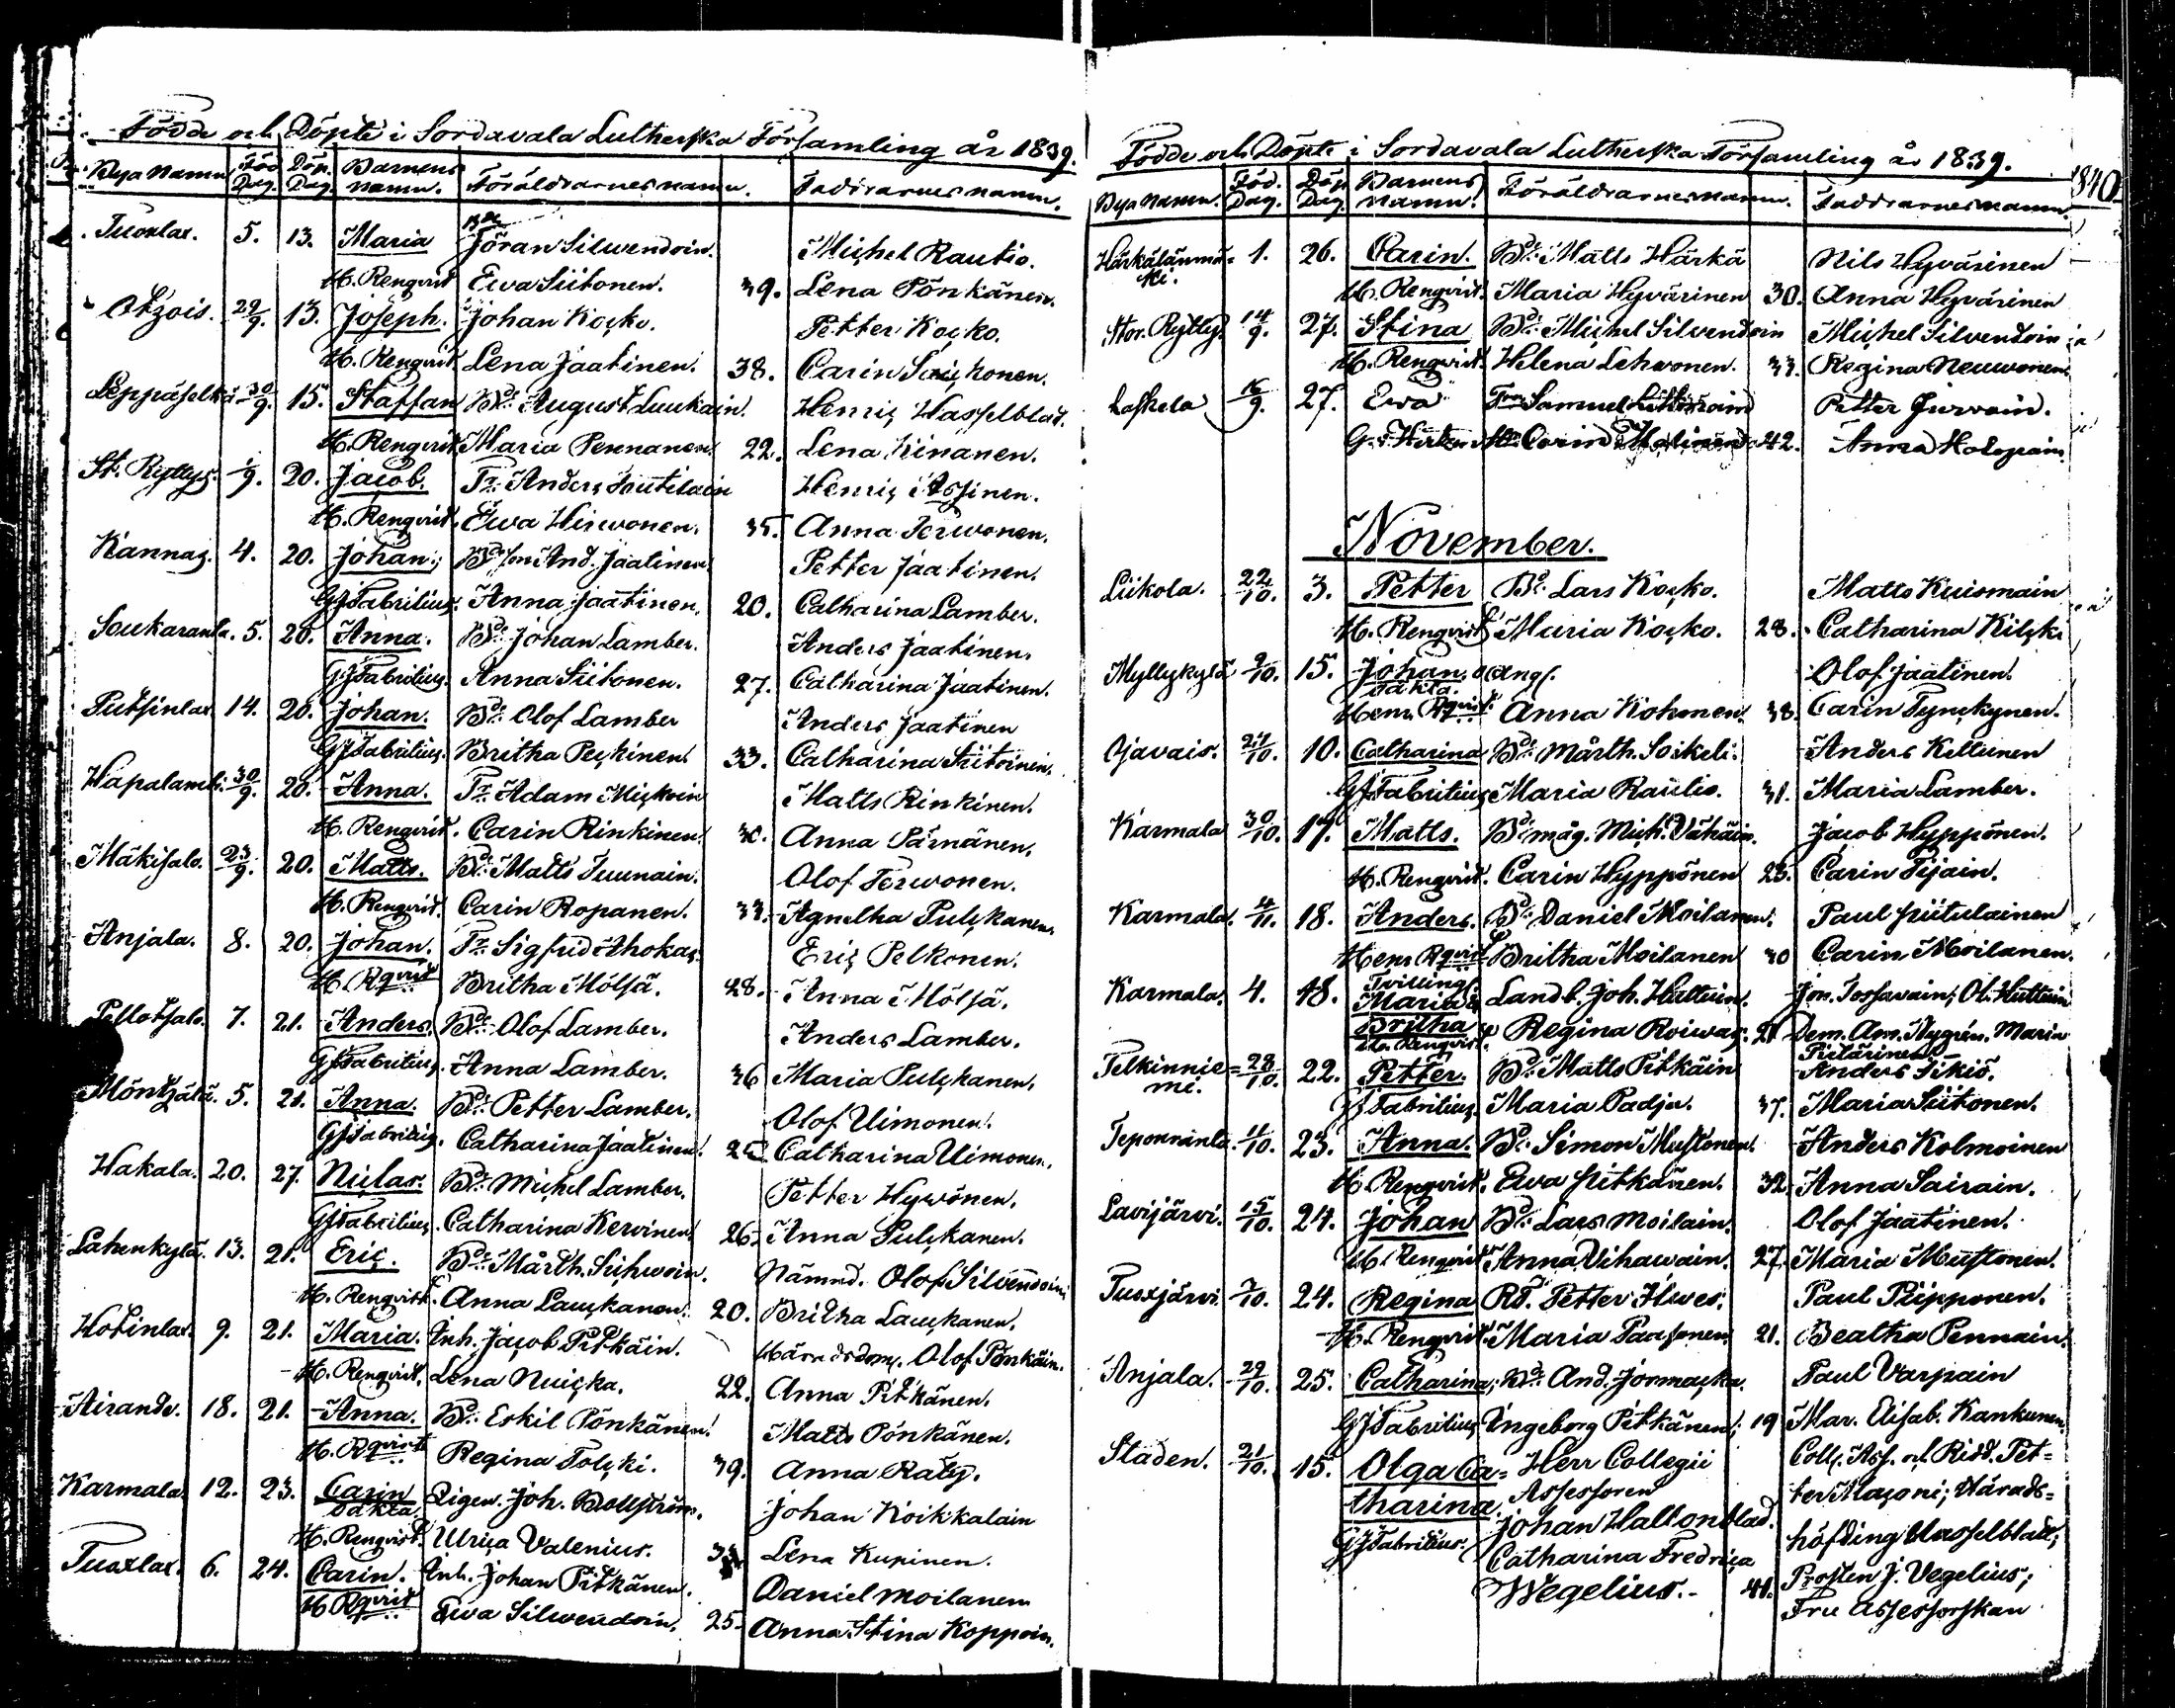 Födde och Döpte i Sordavala Lutherska Församling år 1839.
Bya Namn. Föd. Dag. Döp. Dag. Barnens namn. Föräldrarnes namn. Faddrarnes namn.
Tuoxlax. 5. 13. Maria Jöran Silwendoin. Michel Rautio.
H. Renqvist Ewa Siitonen. 39. Lena Pönkänen.
Otzois. 29/9. 13. Joseph. Johan Kocko. Petter Kocko.
H. Renqvist Lena Jaatinen. 38. Carin Saickonen.
Leppäselkä 30/9. 15. Staffan Bd. August Luukain. Henric Hasselblat.
H. Renqvist Maria Pennanen 22. Lena Kinanen.
St. Ryttys. /9. 20. Jacob. Tr. Anders Sutilain Henric Assinen.
H. Renqvist. Ewa Hirwonen. 35. Anna Terwonen.
Kannas. 4. 20. Johan. Bdson And. Jaatinen Petter Jaatinen.
GJFabritius. Anna Jaatinen. 20. Catharina Lamber.
Soukaranta. 5. 20. Anna. Bd. Johan Lamber. Anders Jaatinen.
GJFabritius. Anna Siitonen. 27. Catharina Jaatinen.
Putsinlax 14. 20. Johan. Bd. Olof Lamber Anders Jaatinen
GJFabritius. Britha Peckinen 33. Catharina Siitoinen.
Hapalambi. 30/9. 20. Anna. Tr. Adam Mickoin Matts Rinkinen.
H. Renqvist. Carin Rinkinen 30. Anna Pärnänen.
Mäkisalo. 23/9. 20. Matts. Bd. Matts Tuunain. Olof Terwonen.
H. Renqvist. Carin Ropanen. 33. Agnetha Pulckanen.
Anjala. 8. 20. Johan. Tr. Sigfrid Ahokas. Eric Pelkonen.
H. Rqvist Britha Mölsä. 28. Anna Mölsä.
Pellotsalo. 7. 21. Anders. Bd. Olof Lamber. Anders Lamber.
GJFabritius. Anna Lamber. 36 Maria Pulckanen.
Möntzälä. 5. 21. Anna. Bd. Petter Lamber. Olof Uimonen.
GJFabritius. Catharina Jaatinen. 25 Catharina Uimonen.
Hakala. 20. 27. Niclas. Bd. Michel Lamber. Petter Hywönen.
GJFabritius. Catharina Kervinen 26. Anna Pulckanen.
Lahenkylä. 13. 21. Eric. Bd. Mårth. Sihwoin. Nämnd. Olof Silvendoin
H. Renqvist. Anna Lauckanen. 20. Britha Lauckanen.
Hotinlax. 9. 21. Maria. Inh. Jacob Pitkäin. Häradsdom. Olof Pönkäin.
H. Renqvist. Lena Nuicka. 22. Anna Pitkänen.
Airando. 18. 21. Anna. Bd. Eskil Pönkänen. Matts Pönkänen.
H. Rqvist Regina Tolcki. 39. Anna Räty.
Karmala. 12. 23. Carin oäkta. Johan Koikkalain
H. Renqvist Ulrica Valenius. Lena Kupinen.
Tuoxlax. 6. 24. Carin. Inh. Johan Pitkänen. Daniel Moilanen
H Rqvist Ewa Silwendoin. 25. Anna Stina Koppoin.
Födde och Döpte i Sordavala Lutherska Församling år 1839.
1840
Bya Namn. Föd. Dag. Döp. Dag. Barnens namn. Föräldrarnes namn. Faddrarnes namn.
Härkälänmä= 1. 26. Carin. Bd. Matts Härkä Nils Hyvärinen
ki.
H. Renqvist. Maria Hyvärinen 30. Anna Hyvärinen
Stor. Ryttys. 14/9. 27. Stina Bd. Michel Silvendoin Michel Silvendoin
H. Renqvist. Helena Lehwonen. 33. Regina Neuwonen
Laskela 16/9. 27. Ewa Samuel Petter Jurvain.
Carin 42. Anna Holopain.
November.
Liikola. 22/10. 3. Petter Bd. Lars Kocko. Matts Kuismain
H. Renqvist Maria Kocko. 28. Catharina Kilcki
Myllykylä 9/10. 15. Johan oäkta. Olof Jaatinen.
Henr. Rqvist. Anna Kohonen. 38. Carin Tynckynen.
Ojavais. 27/10. 10. Catharina Bd. Mårth. Soikeli. Anders Kettunen
GJFabritius Maria Rautio. 31. Maria Lamber.
Karmala 30/10. 17. Matts. Bd. måg. Mich. Vähäin. Jacob Hyppönen.
H. Renqvist. Carin Hyppönen 23. Carin Pijain.
Karmala. 4/11. 18. Anders. Bd. Daniel Moilanen. Paul Piitulainen
Henr Rqvist Britha Moilanen 30 Carin Moilanen.
Karmala. 4. 18. Tvilling. Maria & Landb. Joh. Huttuin. Jon. Tossavain, Ol. Huttuin
Britha Regina Roiwas. 21 Dem. Am. Nygrén. Maria
H. Renqvist. Pitärinen
Telkinnie= 28/10. 22. Petter. Bd. Matts Pitkäin Anders Sikiö.
mi.
GJFabritius. Maria Padja. 37. Maria Siitonen.
Teponranta 11/10. 23. Anna. Bd. Simon Mustonen. Anders Kolmoinen
H. Renqvist. Ewa Pitkänen. 32. Anna Sairain.
Lavijärvi. 15/10. 24. Johan Bd. Lars Moilain. Olof Jaatinen.
H Renqvist Anna Vihawain. 27. Maria Mustonen.
Tuoxjärvi. 7/10. 24. Regina Rd. Petter Hwes. Paul Piipponen.
H. Renqvist. Maria Paasonen 21. Beatha Pennain.
Anjala. 29/10. 25. Catharina; Bd. And. Jormacka. Paul Varpain
GJFabritius Ingeborg Pitkänen; 19 Mar. Elisab. Kankunen
Staden. 21/10. 15. Olga Ca= Herr Collegii Coll. Ass. och Ridd. Pet=
tharina. Assessoren ter Mazoni; Härads=
GJFabritius. Johan Hallonblad. höfding Hasselblatt;
Catharina Fredrica Prosten J. Vegelius;
Wegelius. 41. Fru Assessorskan